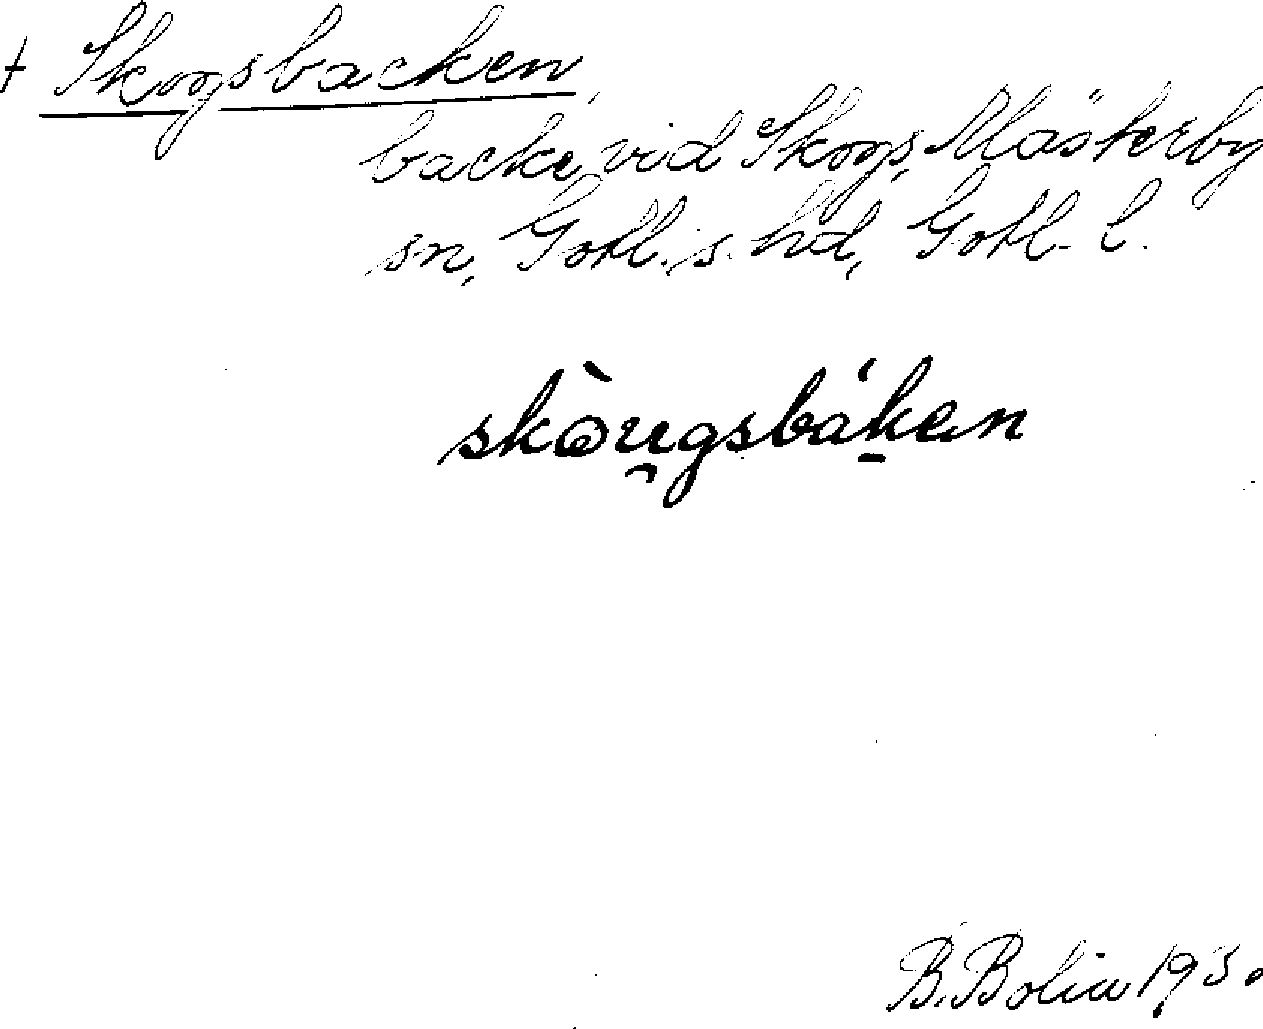 + Skogsbacken,
backe vid Skogs, Mästerby
sn, Gotl. s. hd, Gotl. l.
skòu̯gsbák̠en
B. Bolin 193.